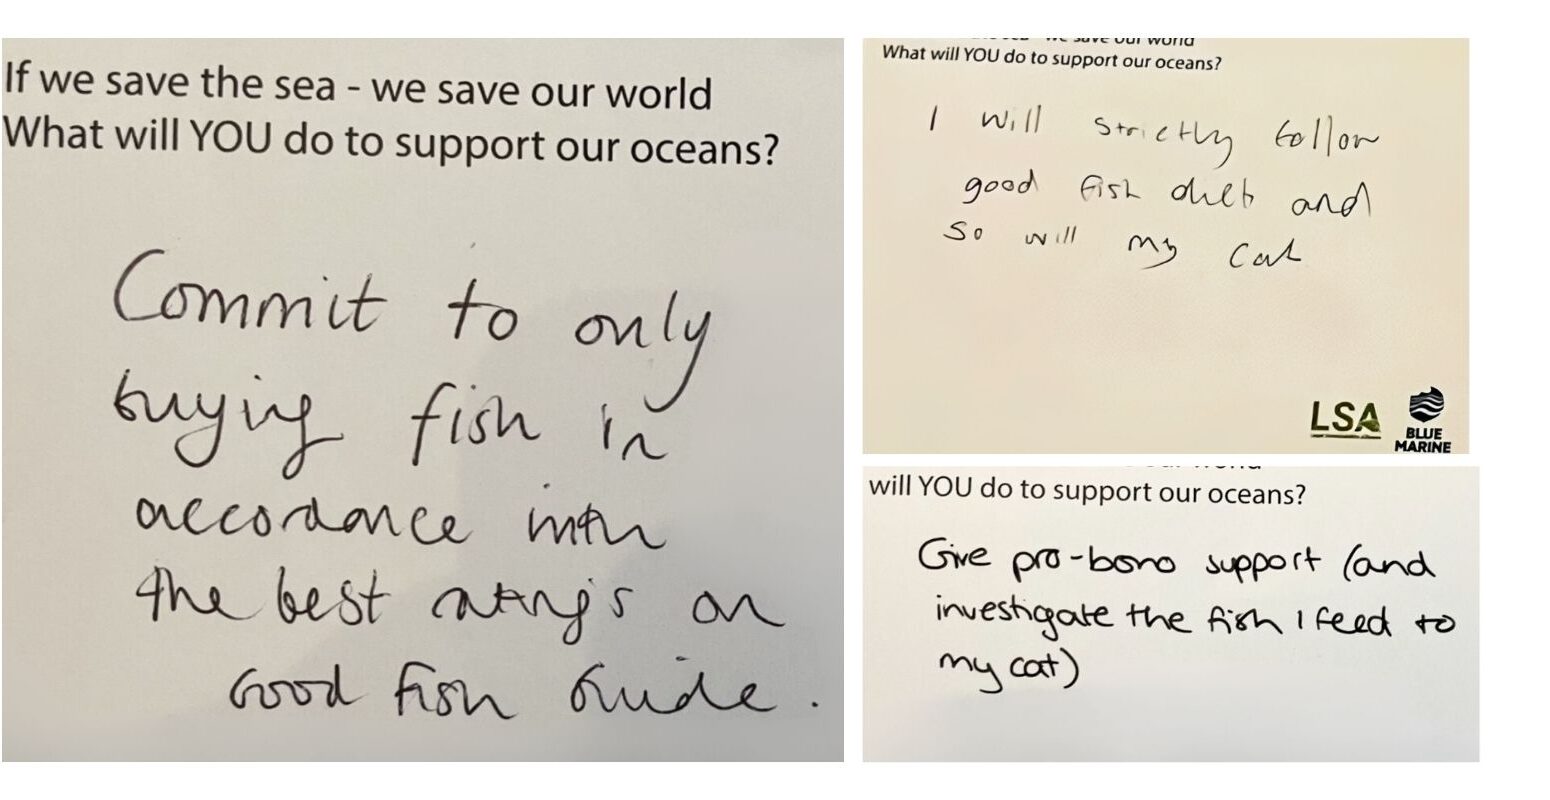 If we save the sea - we save our world
What will YOU do to support our oceans?
Commit to only
buying fish in
accordance with
the best ratings on
Good Fish Guide.
we save our world
What will YOU do to support our oceans?
I will strictly follow
good fish diet and
so will my cat
LSA
BLUE
MARINE
will YOU do to support our oceans?
Give pro-bono support (and
investigate the fish I feed to
my cat)